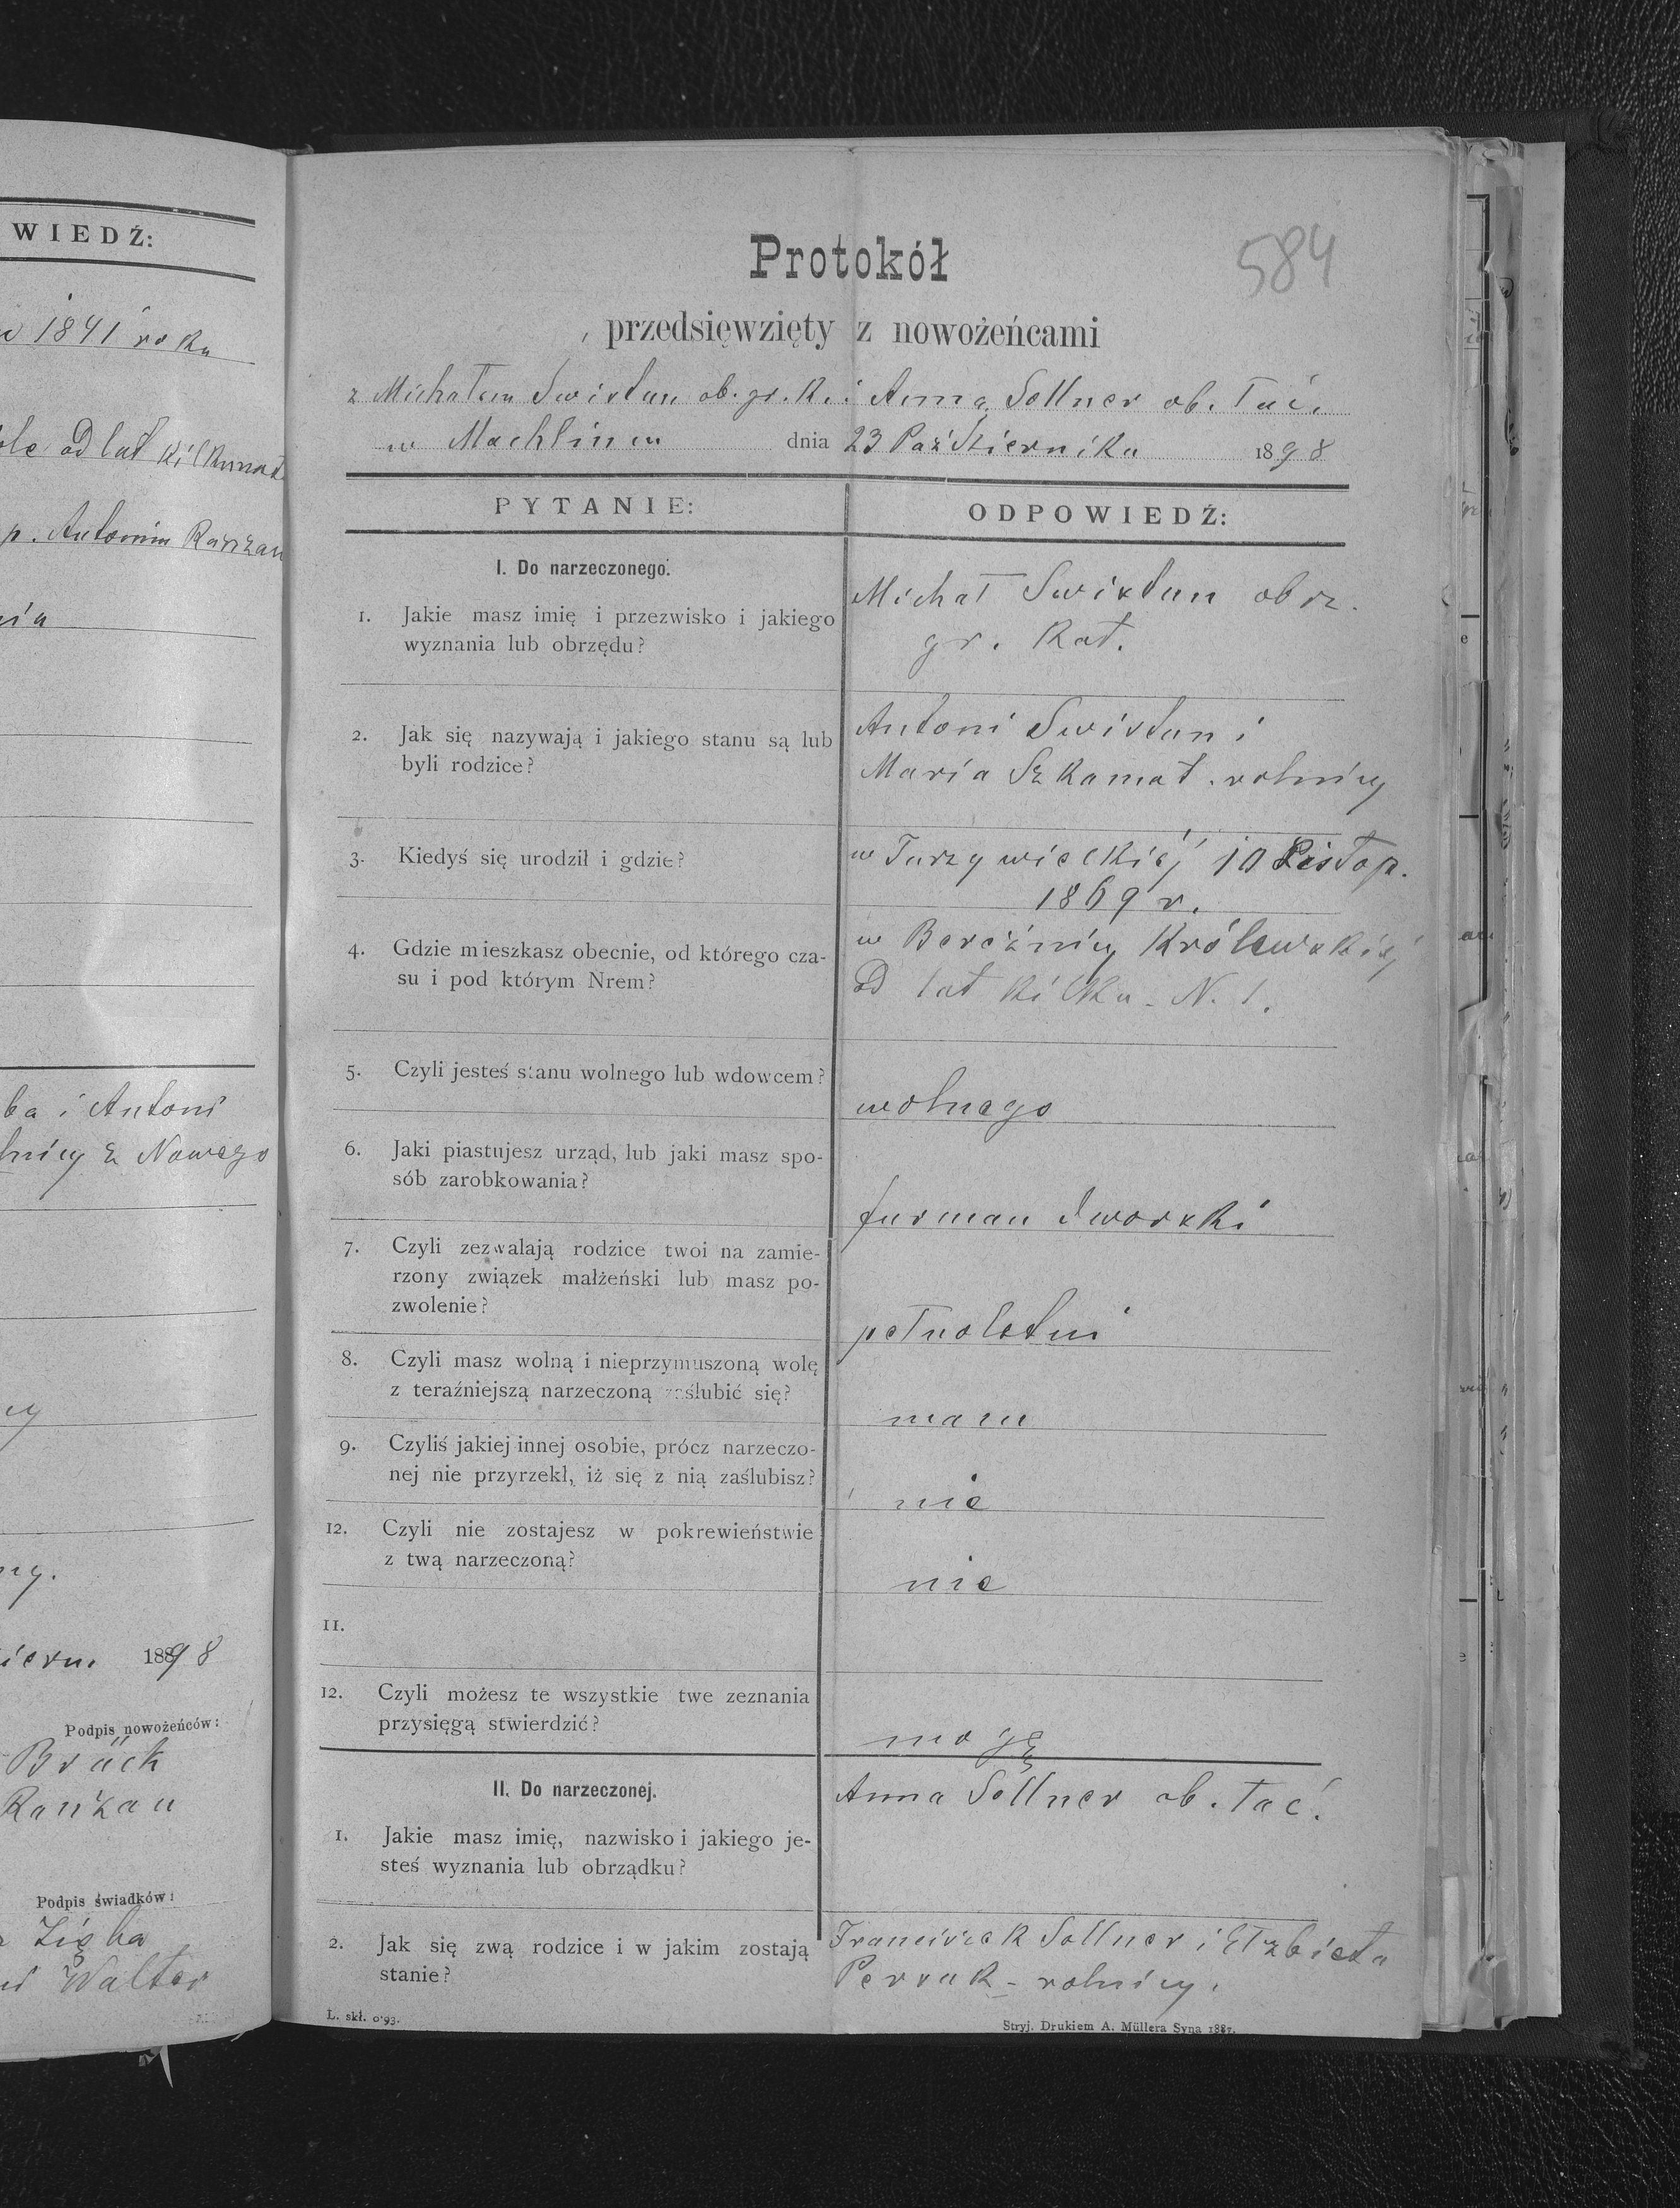 WIEDŹ:
1841 roku
od lat kilkunast
p. Antonim Ranzau
nia
ba i Antoni
lnicy z Nowego
cy
ny.
iern. 1898
Podpis nowożeńców:
Brück
Ranzau
Podpis świadków:
Zięba
Walter
584
Protokół
przedsięwzięty z nowożeńcami
z Michałem Swistun ob. gr. k. i Anną Sollner ob. łać.
w Machlincu dnia 23 Października 1898
PYTANIE:
ODPOWIEDŹ:
I. Do narzeczonego.
1. Jakie masz imię i przezwisko i jakiego
wyznania lub obrzędu?
Michał Swistun obrz.
gr. kat.
2. Jak się nazywają i jakiego stanu są lub
byli rodzice?
Antoni Swistun i
Maria Szkamat. rolnicy
3. Kiedyś się urodził i gdzie?
w Turzy wielkiéj 10 Listop.
1869 r.
4. Gdzie mieszkasz obecnie, od którego cza-
su i pod którym Nrem?
w Bereźnicy Królewskiéj
od lat kilku - N. 1.
5. Czyli jesteś stanu wolnego lub wdowcem?
wolnego
6. Jaki piastujesz urząd, lub jaki masz spo-
sób zarobkowania?
furman dworski
7. Czyli zezwalają rodzice twoi na zamie-
rzony związek małżeński lub masz po-
zwolenie?
pełnoletni
8. Czyli masz wolną i nieprzymuszoną wolę
z teraźniejszą narzeczoną zaślubić się?
mam
9. Czyliś jakiej innej osobie, prócz narzeczo-
nej nie przyrzekł, iż się z nią zaślubisz?
nie
12. Czyli nie zostajesz w pokrewieństwie
z twą narzeczoną?
nie
11.
12. Czyli możesz te wszystkie twe zeznania
przysięgą stwierdzić?
mogę
II. Do narzeczonej.
1. Jakie masz imię, nazwisko i jakiego je-
steś wyznania lub obrządku?
Anna Sollner ob. łać.
2. Jak się zwą rodzice i w jakim zostają
stanie?
Franciszek Sollner i Elżbieta
Perrak - rolnicy.
L. skł. 0·93.
Stryj. Drukiem A. Müllera Syna 1887.